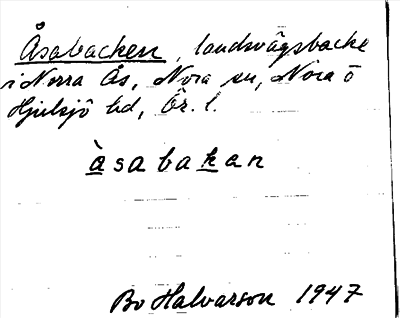 Åsabacken, landsvägsbacke
i Norra Ås, Nora sn, Nora o
Hjulsjö bd, Ör. l.
àsabakan
Bo Halvarson 1947